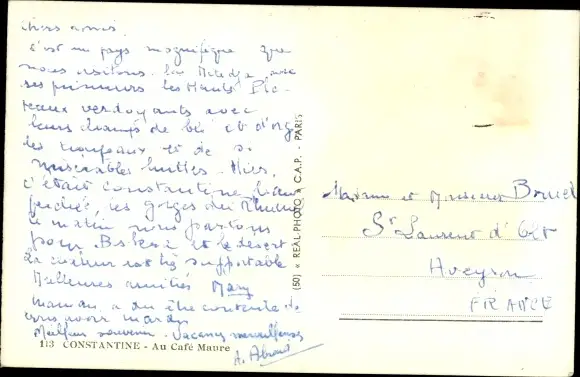 Chers amis.
C'est un pays magnifique que
nous visitons. La Mitidja avec
ses primeurs les Hauts Pla-
teaux verdoyants avec
leurs champs de blé et d'orge
des troupeaux et de si
misérables huttes. Hier,
c'était Constantine
perchée, les gorges du Rhumel
Ce matin nous partons
pour Biskra et le désert
La chaleur est supportable
Meilleures amitiés Mary
maman a dû être contente de
vous voir mardi
Meilleur souvenir. Vacances merveilleuses
113 CONSTANTINE - Au Café Maure
(50) « REAL-PHOTO » C.A.P. - PARIS
Madame et Monsieur
St Laurent d'Olt
Aveyron
FRANCE